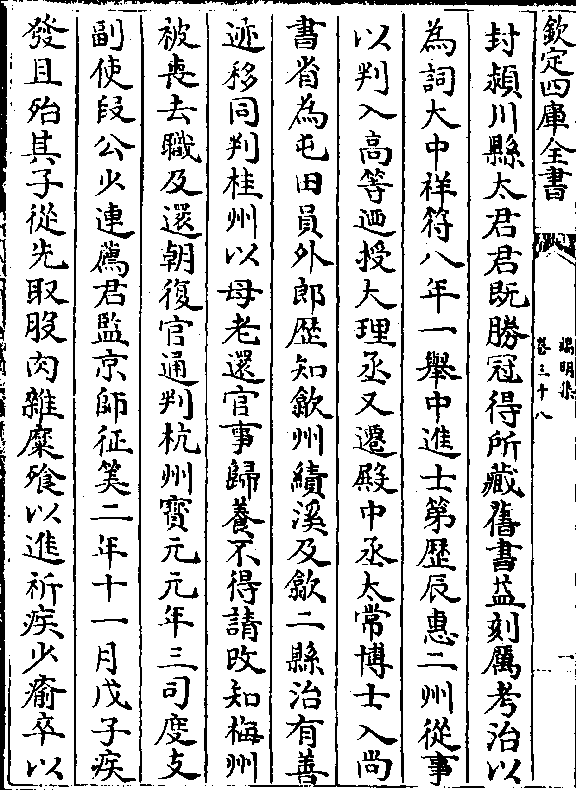 欽定四庫全書
端明集
卷三十八
封潁川縣太君君既勝冠得所藏舊書益刻厲考治以
為詞大中祥符八年一舉中進士第歴辰惠二州從事
以判入高等迺授大理丞又遷殿中丞太常博士入尚
書省為屯田員外郎歴知歙州績溪及歙二縣治有善
迹移同判桂州以母老還官事歸養不得請改知梅州
被喪去職及還朝復官通判杭州寳元元年三司度支
副使段公少連薦君監京師征筭二年十一月戊子疾
發且殆其子從先取股肉雜糜飱以進祈疾少瘉卒以